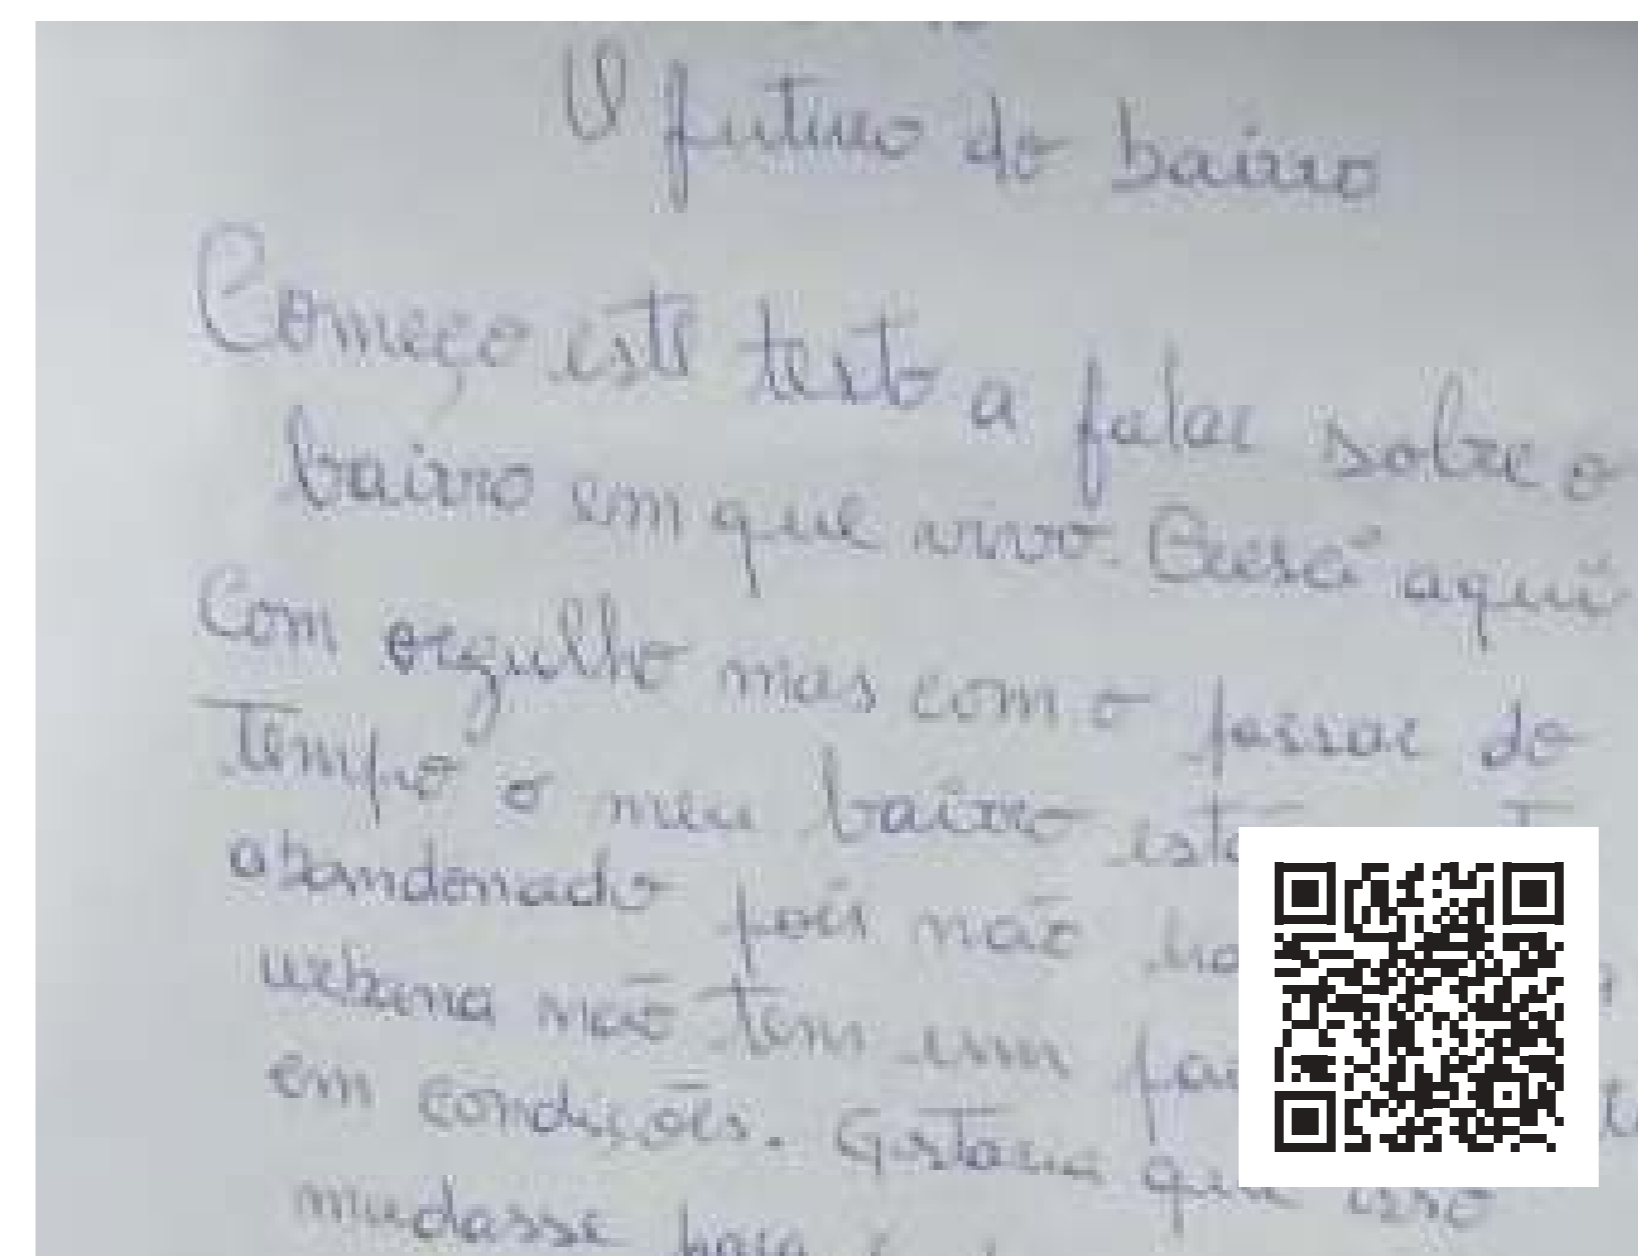 O futuro do bairro
Começo este texto a falar sobre o
bairro em que vivo. Cresci aqui
com orgulho mas com o passar do
tempo o meu bairro está
abandonado pois não
urbana não tem um
em condições. Gostaria que isso
mudasse